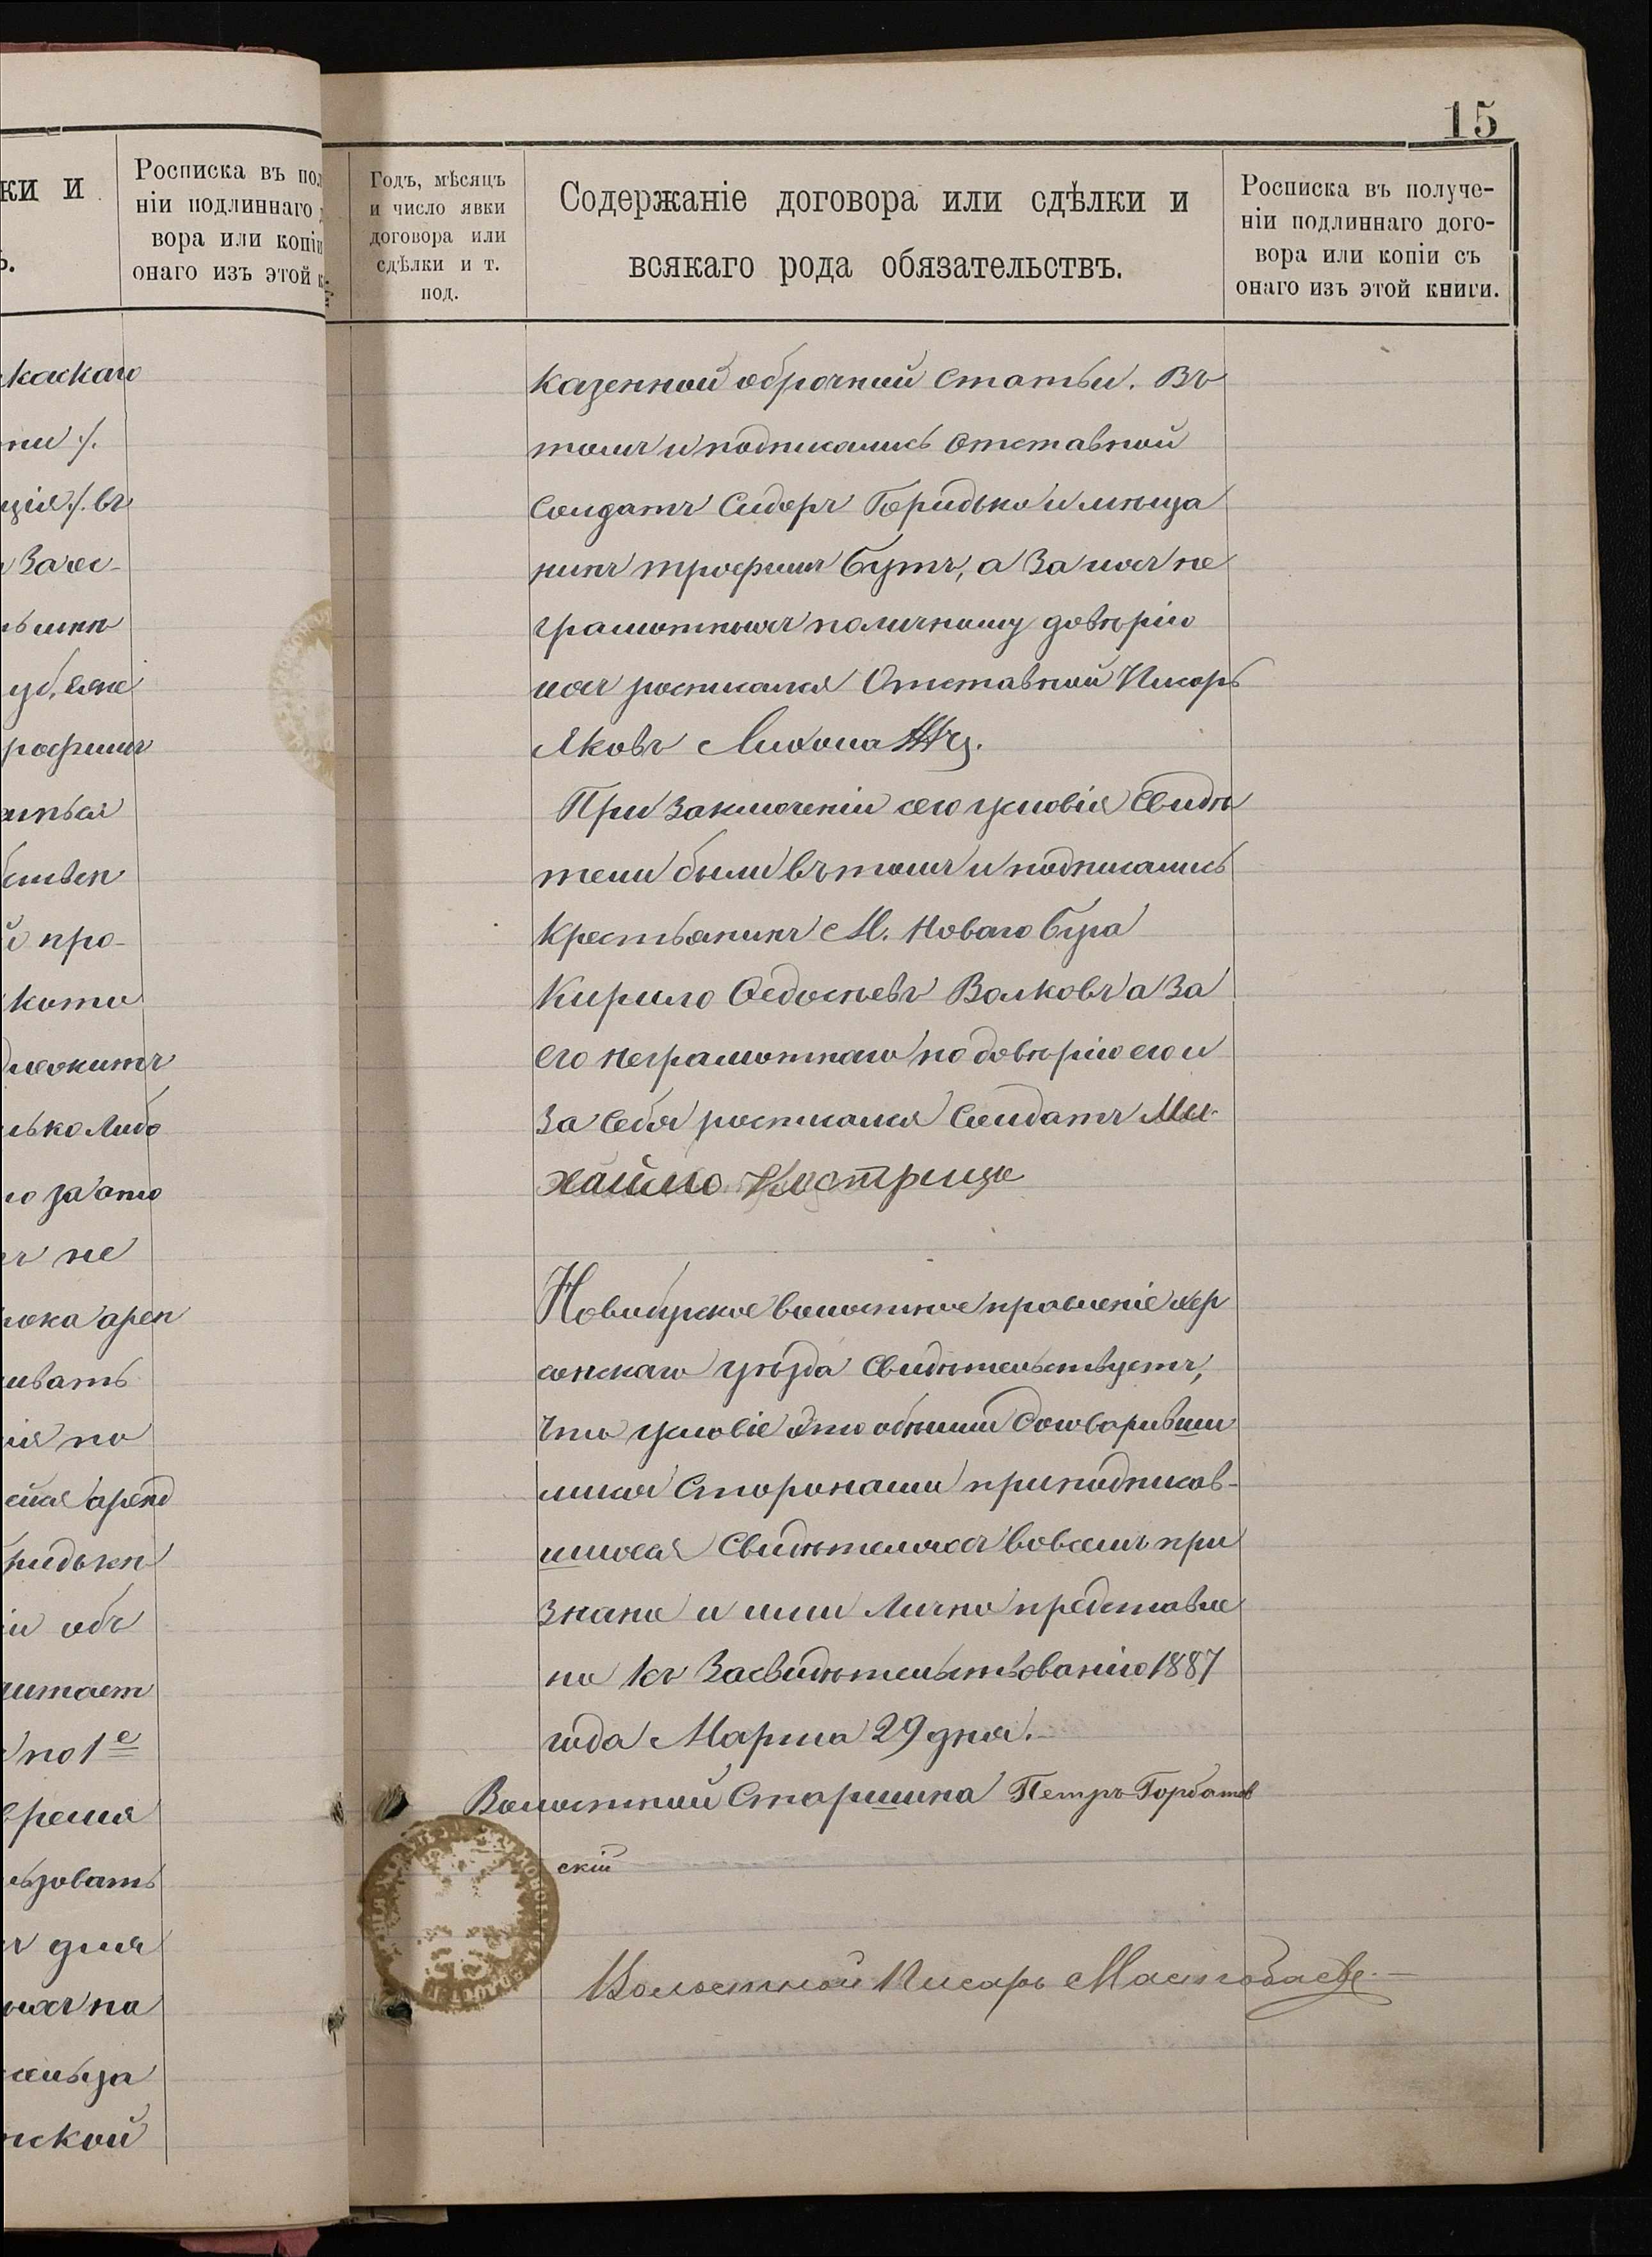 15
ки и
Росписка въ пол
ніи подлиннаго д
вора или копіи
онаго изъ этой к
Годъ, мѣсяцъ
и число явки
договора или
сдѣлки и т.
под.
Содержаніе договора или сдѣлки и
всякаго рода обязательствъ.
Росписка въ получе-
ніи подлиннаго дого-
вора или копіи съ
онаго изъ этой книги.
ни /.
ція /. въ
уб,
рофимъ
аться
й про-
лько либо
ъ не
рока арен
ивать
ія по
ридьки
іи объ
по 1е
время
ьзовать
ъ для
нской
казенной оброчной статьи. Въ
томъ и подписались Отставной
Солдатъ Сидоръ Горидько и мѣща
нинъ Трофимъ Бутъ, а за ихъ не
грамотныхъ поличному довѣрію
ихъ росписался Отставной Писарь
Яковъ
При заключеніи сего условія Свидѣ
тели были въ томъ и подписались
Крестьянинъ М. Новаго Буга
Кирило Федосѣевъ Волковъ а За
его неграмотнаго по довѣрію его и
За себя росписался Солдатъ Ми-
хайло
Новобугское волостное правленіе Хер
сонскаго уѣзда Свидѣтельствуетъ,
Что условіе это обѣими Договоривши
мися Сторонами приподписав-
шихся Свидѣтеляхъ вовсемъ при
знано и ими Лично представле
но къ Засвидѣтельствованію 1887
года Марта 29 дня.
Волостной Старшина Петръ Горбатов
скій
Волостной Писарь